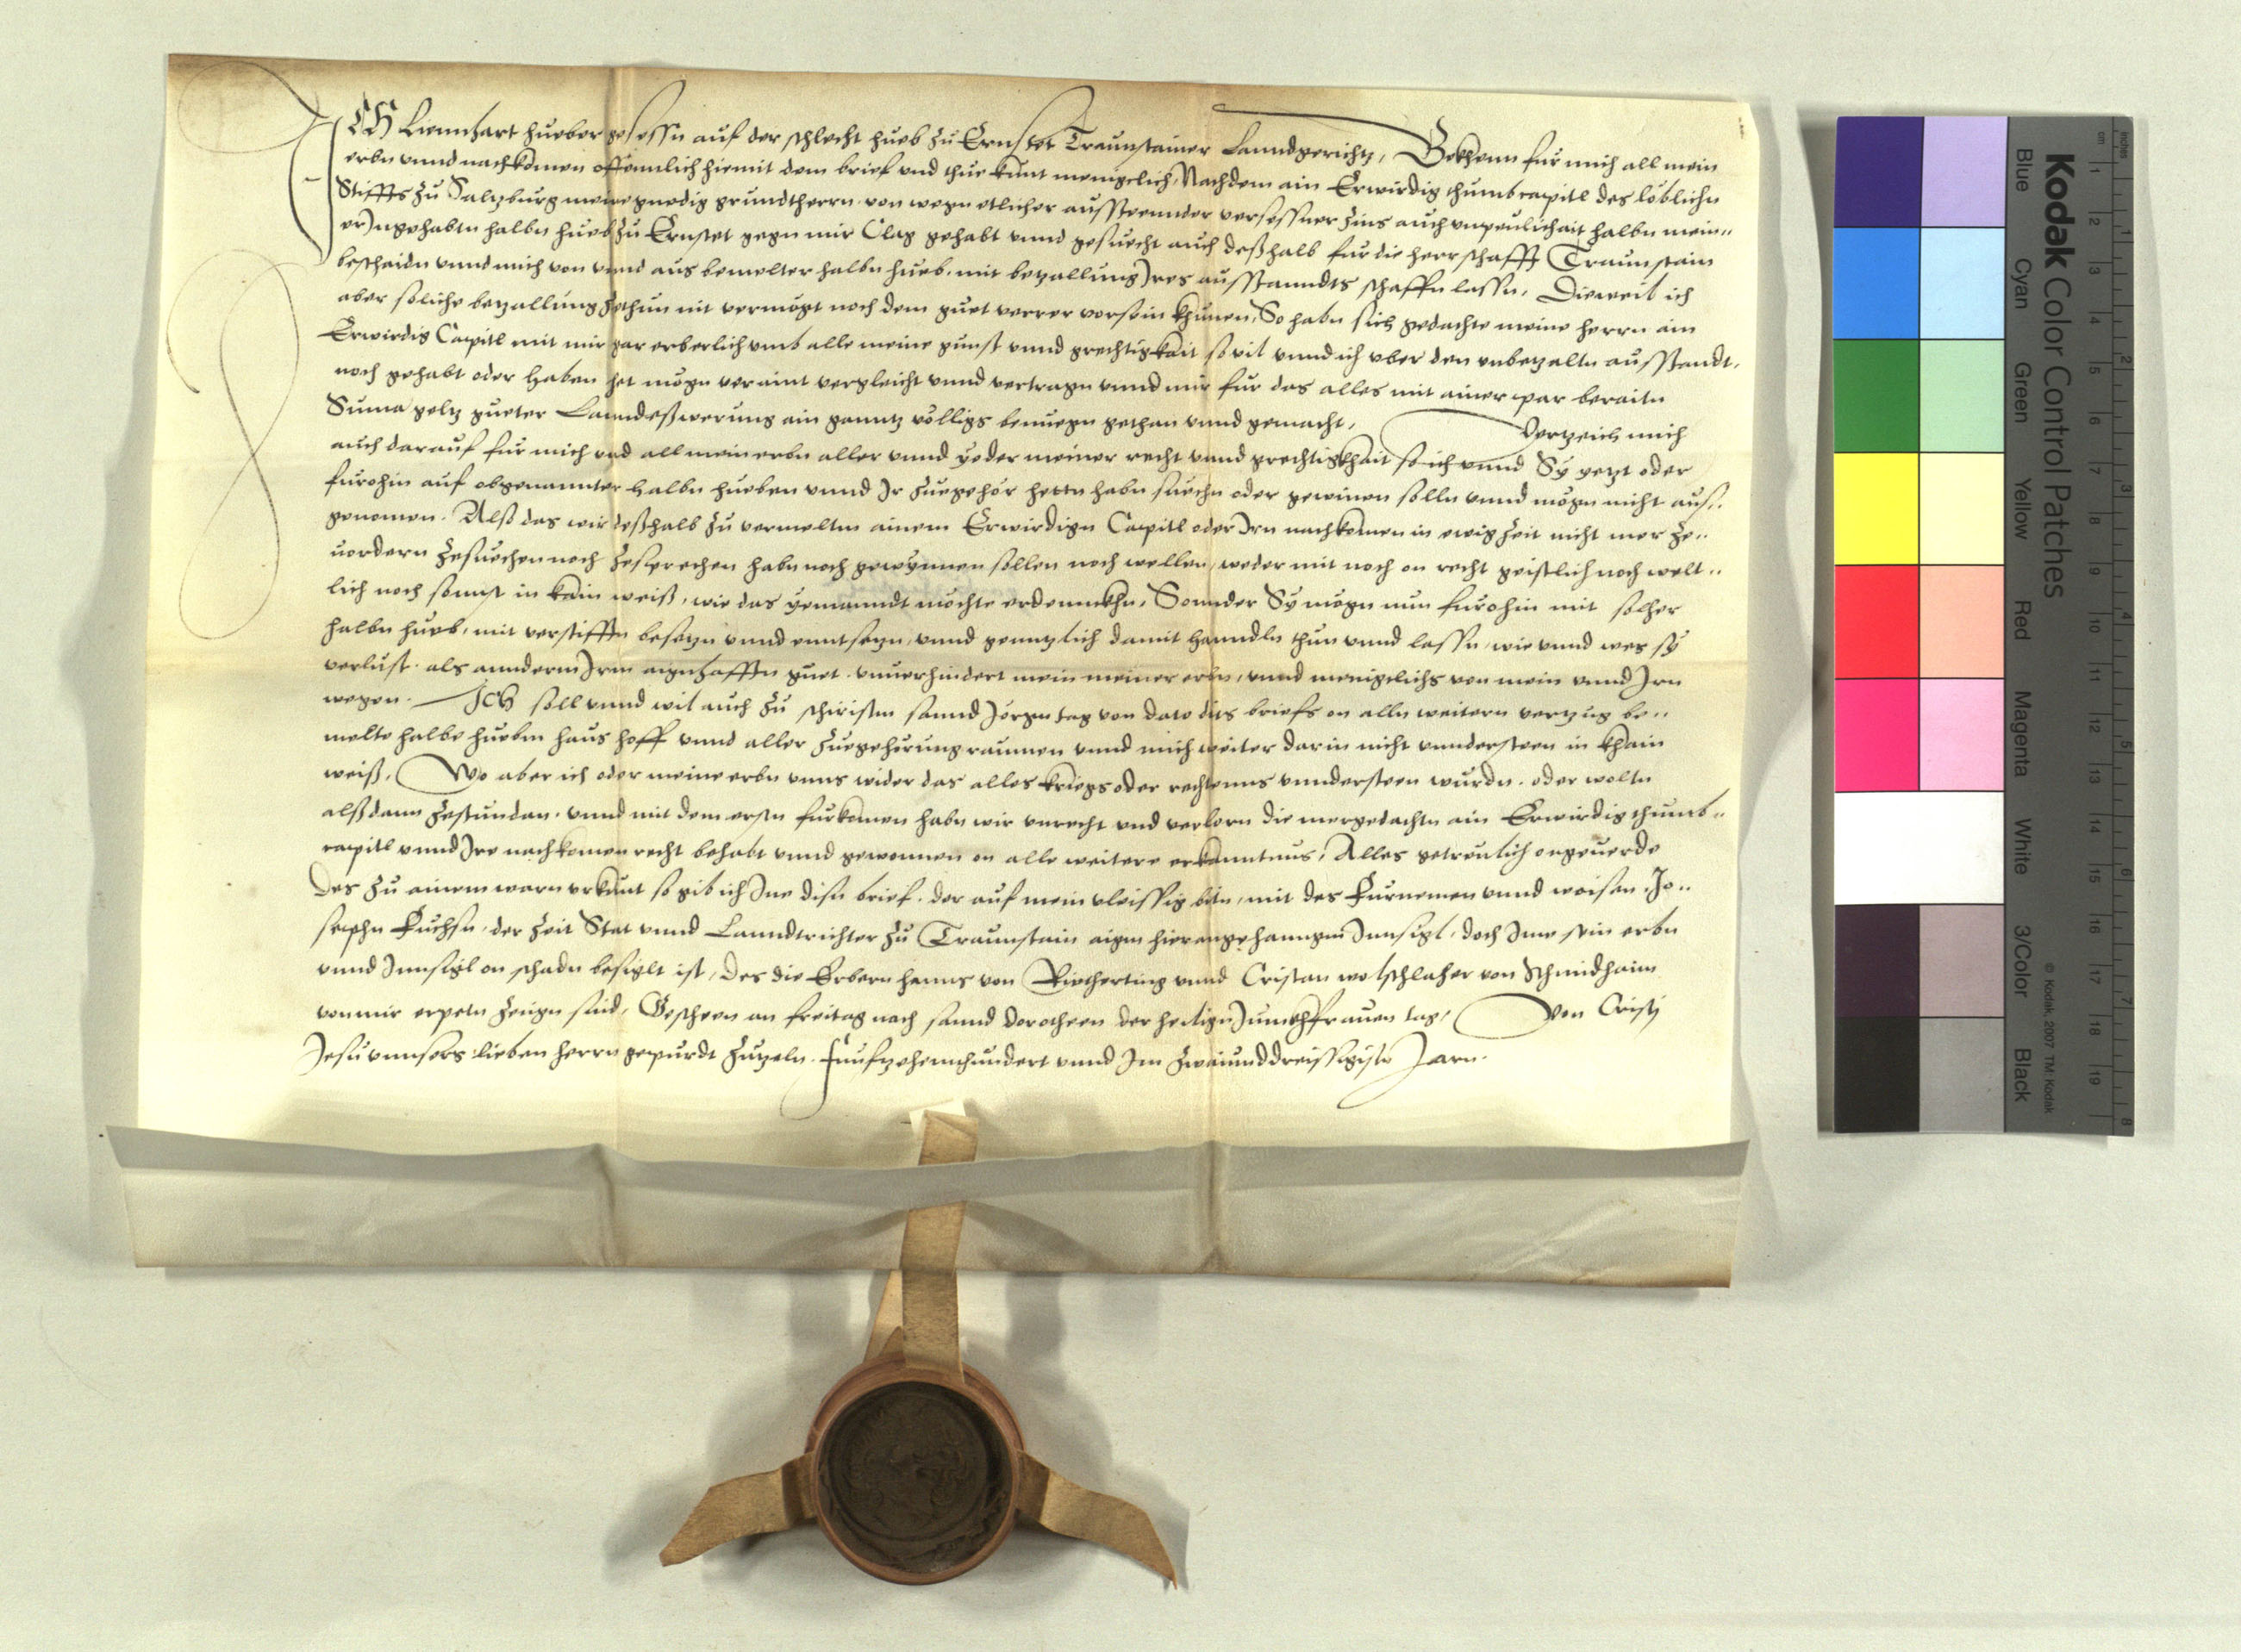 ICH Liennhart hueber gesessn auf der schlecht hueb zu Ernstet Traunstainer Lanndgerichtz, Bekhenn fur mich all mein
erbn vnnd nachkomen offennlich hiemit dem brief vnd thue kunt menigclich, Nachdem ain Erwirdig thumbcapitl des loblichn
Stiffts zu Saltzburg meine gnedig grundtherrn von wegn etlicher aussteennder versessner zins auch vnpeulichait halbn mein„
er Jngehabtn halbn hueb zu Ernstet gegn mir Clag gehabt vnnd gesuecht auch deßhalb fur die herrschafft Traunstain
beschaidn vnnd mich von vnnd aus bemelter halbn hueb, mit betzallung Jres ausstanndts schaffn lassn, Dieweil ich
aber soliche betzallung zethun nit vermögt noch dem guet verrer vorsein khunen, So habn sich gedachte meine herrn ain
Erwirdig Capitl mit mir gar erberlich vmb alle meine gunst vnnd grechtigkait so vil vnnd ich vber den vnbetzaltn ausstandt,
noch gehabt oder haben het mögn veraint vergleicht vnnd vertragn vnnd mir fur das alles mit ainer par beraitn
Suma geltz gueter Lanndeßwerung ain ganntz völligs benuegn gethan vnnd gemacht, Vertzeich mich
auch darauf fur mich vnd all mein erbn aller vnnd yeder meiner recht vnnd grechtigkhait so ich vnnd Sy yetzt oder
furohin auf obgenannter halbn hueben vnnd Jr zuegehör hettn habn suechn oder gewinen solln vnnd mögn nicht aus„
genomen. Alß das wir deßhalb zu vermeltm ainem Erwirdign Capitl oder Jrn nachkomen in ewig zeit nicht mer ze„
uordern zesuechen noch zesprechen habn noch gewynnen sollen noch wellen, weder mit noch on recht geistlich noch welt„
lich noch sonnst in kain weiß, wie das yemanndt möchte erdennkhn, Sonnder Sy mögn nun furohin mit solher
halbn hueb, mit verstifftn besetzn vnnd enntsetzn, vnnd genntzlich damit hanndln thun vnnd lassn, wie vnnd wes sy
verlust. als annderm Jrm aignhafftn guet. vnuerhindert mein meiner erbn, vnnd menigclichs von mein vnnd Jrn
wegen. ICH soll vnnd wil auch zu schiristn sannd Jörgn tag von dato dits briefs on alln weitern vertzug be„
melte halbe hueben haus hoff vnnd aller zuegehörung raumen vnnd mich weiter darin nicht vnndersteen in khain
weiß, Wo aber ich oder meine erbn vnns wider das alles kriegs oder rechtenns vnndersteen wurdn. oder woltn
alßdann zestundan. vnnd mit dem erstn furkomen habn wir vnrecht vnd verlorn die mergedachtn ain Erwirdig thumb„
capitl vnnd Jre nachkomen recht behabt vnnd gewonnen on alle weitere erkanntnus, Alles getreulich ongeuerde
Des zu ainem warn vrkunt so gib ich Jne disn brief. der auf mein vleissig bitn, mit des Furnemen vnnd weisen Jo„
sephn Fuchsn, der zeit Stat vnnd Lanndtrichter zu Traunstain aigm hierangehanngm Jnnsigl, doch Jme sein erbn
vnnd Jnnsigl on schadn besiglt ist, Des die Erbern hanns von Rietherting vnnd Cristan wolschlaher von Schmidhaim
von mir erpetn zeugn sind, Gescheen an freitag nach sannd dorotheen der heilign Junckhfrauen tag, Von Cristj
Jesu vnnsers lieben herrn gepurdt zutzeln. Funfzehennhundert vnnd Jm zwaiunddreissigistn Jarn.
Kodak Color Control Patches
Blue Cyan Green Yellow Red Magenta White 3/Color Black
© Kodak, 2007 TM Kodak
cm 1 2 3 4 5 6 7 8 9 10 11 12 13 14 15 16 17 18 19
inches 1 2 3 4 5 6 7 8